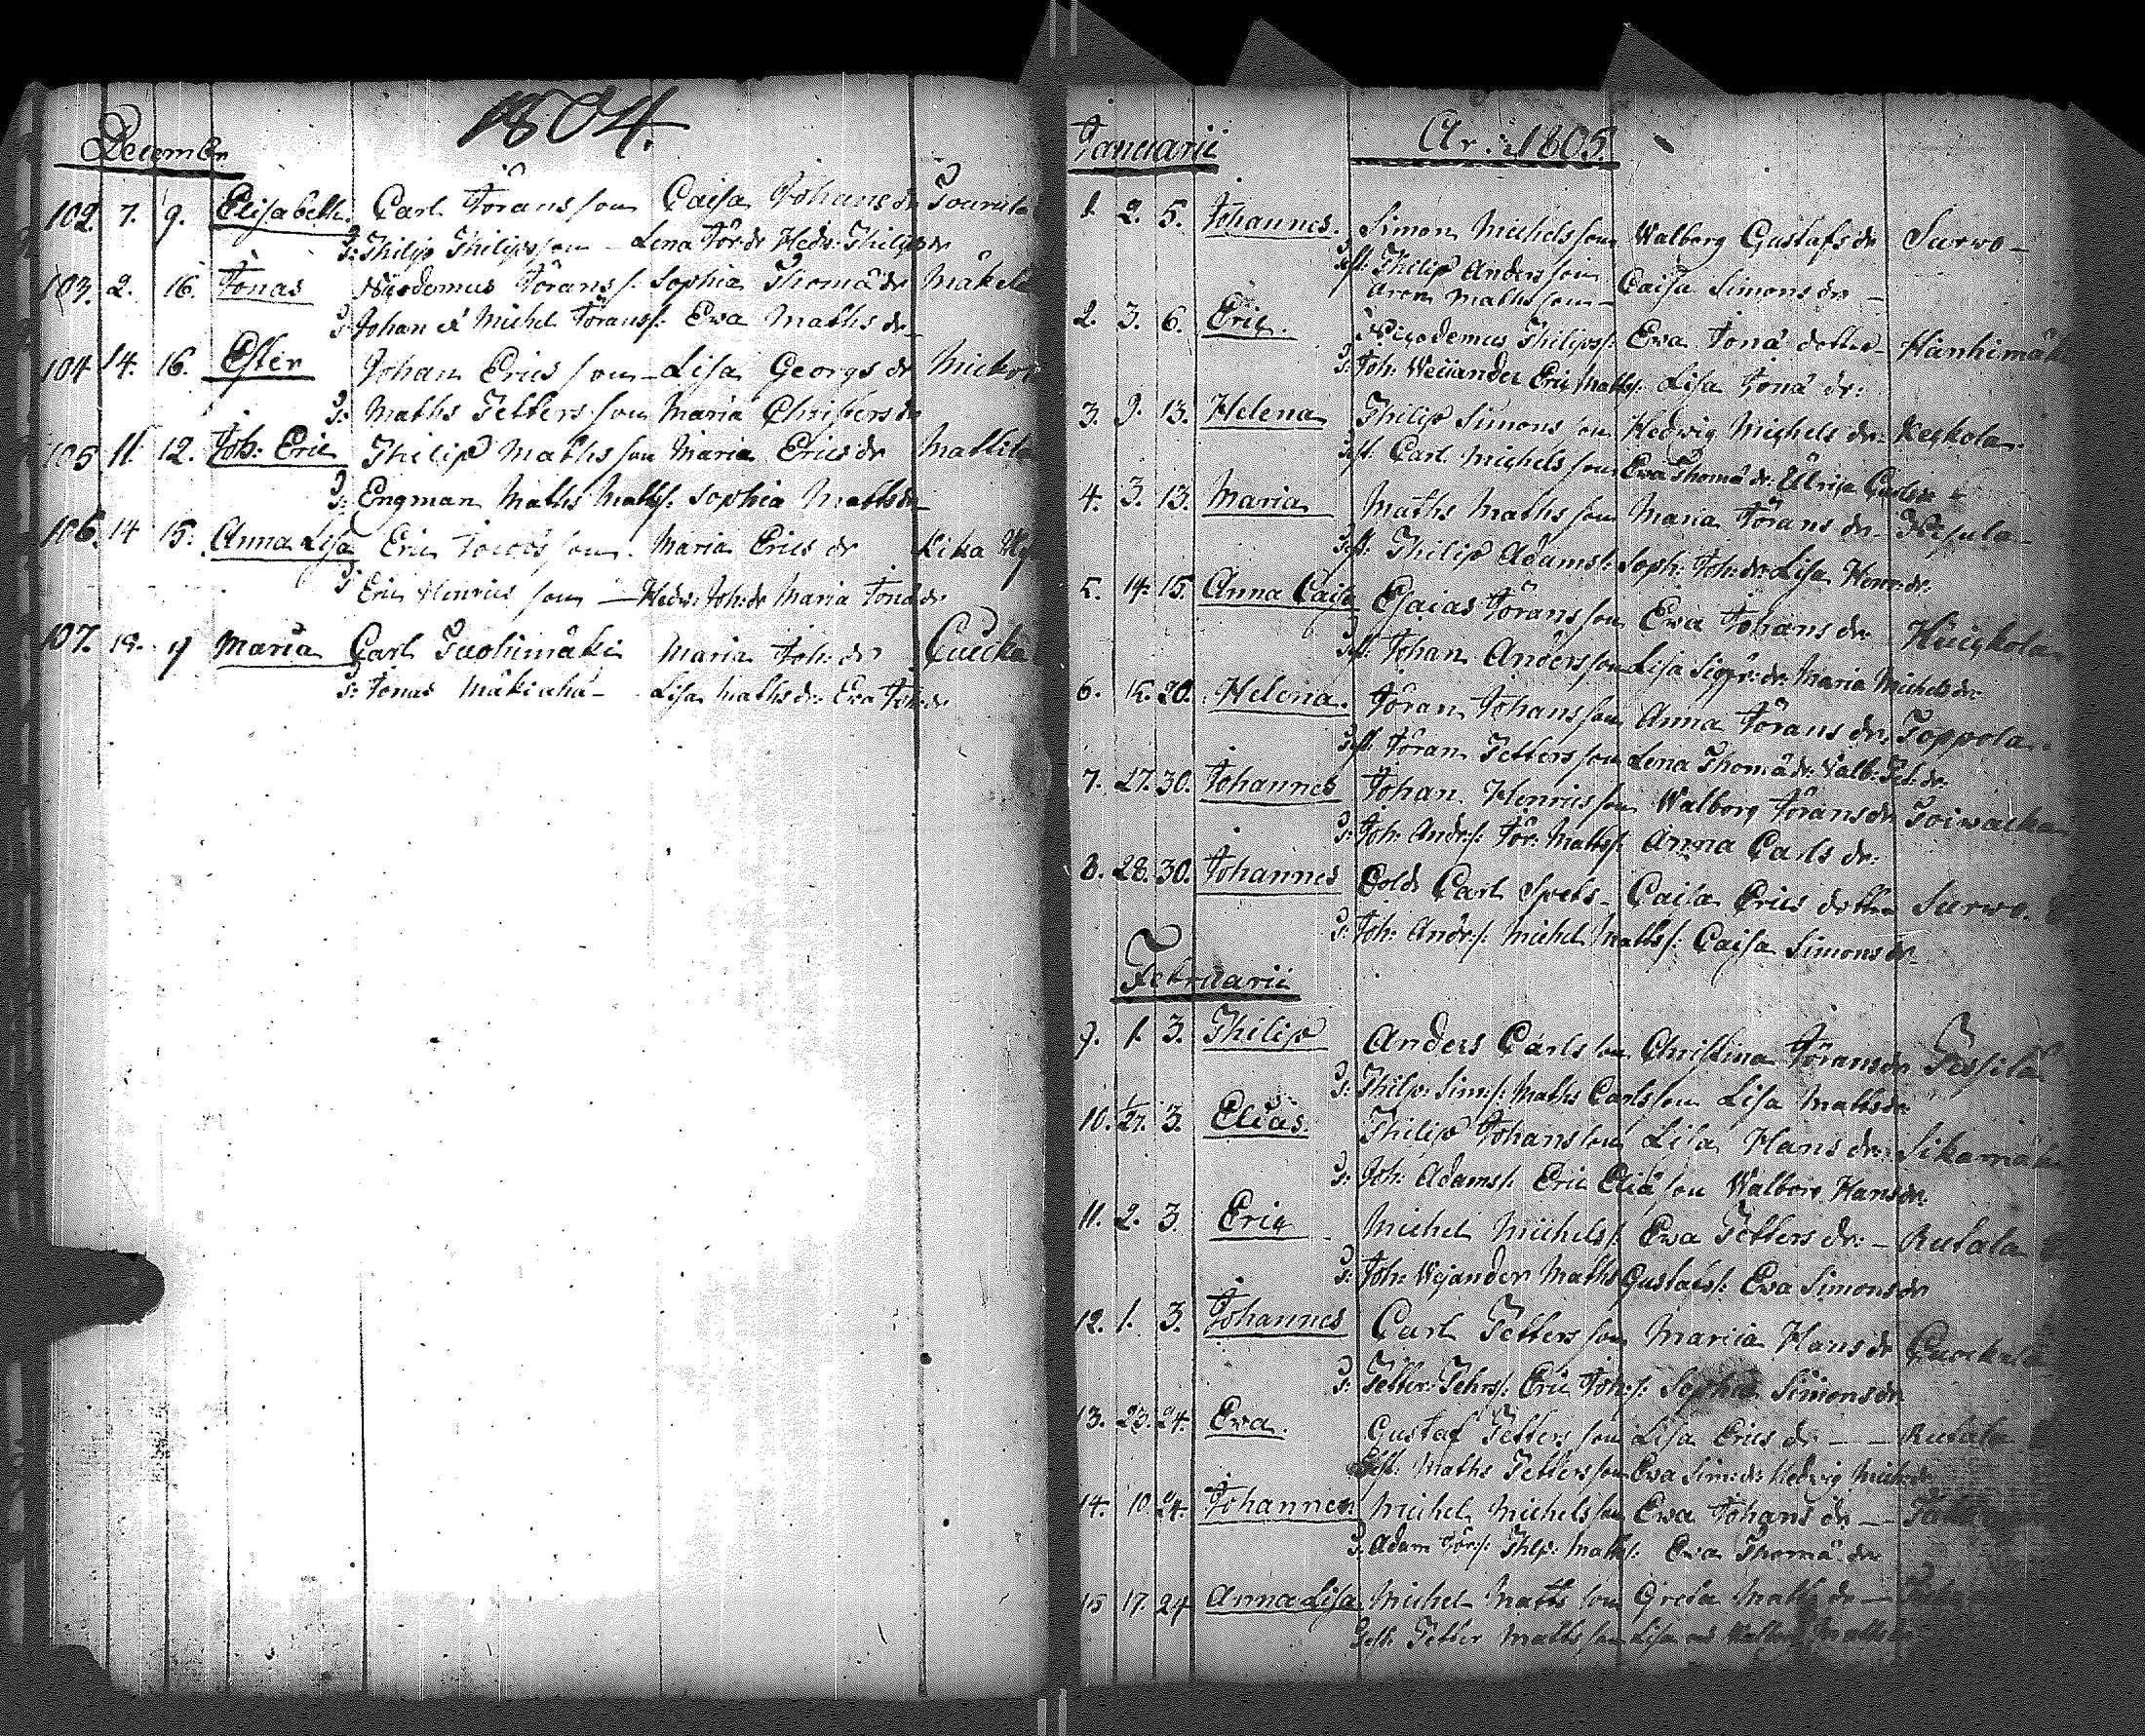 1804.
December
102. 7. 9. Elisabeth. Carl Jöransson Caisa Johans dr Pourula
T: Philip Philipsson – Lena Jör: dr Hedv: Philips dr
103. 2. 16. Jonas Nicodemus Jörans s. Sophia Thomæ dr Mäkelä
T: Johan & Michel Jöranss: Eva Maths dr
104 14. 16. Ester Johan Erics son – Lisa Georgs dr Mickol
T: Maths Petters son Maria Christers dr
105 11. 12. Joh: Eric Philip Mathsson Maria Erics dr Mattila
T: Engman Maths Matss: Sophia Matts dr
106. 14 15. Anna Lisa Eric son. Maria Erics dr Lika
T: Eric Henrics son – Hedv: Joh: dr Maria Jonæ dr
107. 18. Maria Carl Tuohimäki Maria Joh: dr
T: Jonas – Lisa Maths dr: Eva Joh: dr
Januarii Ar: 1805.
1. 2. 5. Johannes. Simon Michelsson Walborg Gustafs dr Surwo –
Test: Philip Andersson
Aron Mathsson – Caisa Simons dr –
2. 3. 6. Eric. Nicodemus Philipss: Eva Jonæ dotter – Hanhimäk
T: Joh: Weijander Eric Mattss: Lisa Jonæ dr:
3. 9. 13. Helena Philip Simonsson Hedwig Michels dr: Keckola.
Test: Carl Michelsson Eva Thomæ dr: Ullrica Carls dr
4. 3. 13. Maria Maths Mathsson Maria Jörans dr –
Test: Philip Adamss: Soph: Joh: dr: Lisa Henr: dr:
5. 14. 15. Anna Caisa Esaias Jöransson Eva Johans dr
Test: Johan Andersson Lisa dr: Maria Michels dr:
6. 20. Helena. Jöran Johansson Anna Jörans dr. Poppola.
Test: Jöran Pettersson Lena Thomæ dr: Valb: Pet: dr:
7. 27. 30. Johannes Johan Henricsson Walborg Jörans dr. Toiwacka
T: Joh: Andrs: Jör: Mattss: Anna Carls dr:
8. 28. 30. Johannes Sold: Carl Spets – Caisa Erics dotter Surwo.
T: Joh: Andrs: Michel Mattss: Caisa Simons dr –
Februarii
9. 1. 3. Philip Anders Carlsson Christina Jörans dr Pessilä
T: Philp: Sims: Maths Carlsson Lisa Matts dr
10. 3. Elias. Philip Johansson Lisa Hans dr. Sikamäki
T: Joh: Adamss: Eric Eliæ son Walborg Hans dr.
11. 2. 3. Eric Michel Michelss: Eva Petters dr: – Rutala
T: Joh: Wejander Maths Gustafss: Eva Simons dr
12. 1. 3. Johannes Carl Pettersson Maria Hans dr
T: Petter Pehrs: Eric Johs: Sophia Simons dr
13. 23. 24. Eva. Gustaf Pettersson Lisa Erics dr – – Rutala
Test: Maths Pettersson Eva Sim: dr: Hedvig Mich: dr
14. 10. 24. Johannes. Michel Michelsson Eva Johans dr –
T: Adam Jörs: Philp: Matss: Eva Thomæ dr
15 17. 24 Anna Lisa Michel Mattsson Greta Matts dr –
Test: Petter Mattsson Lisa